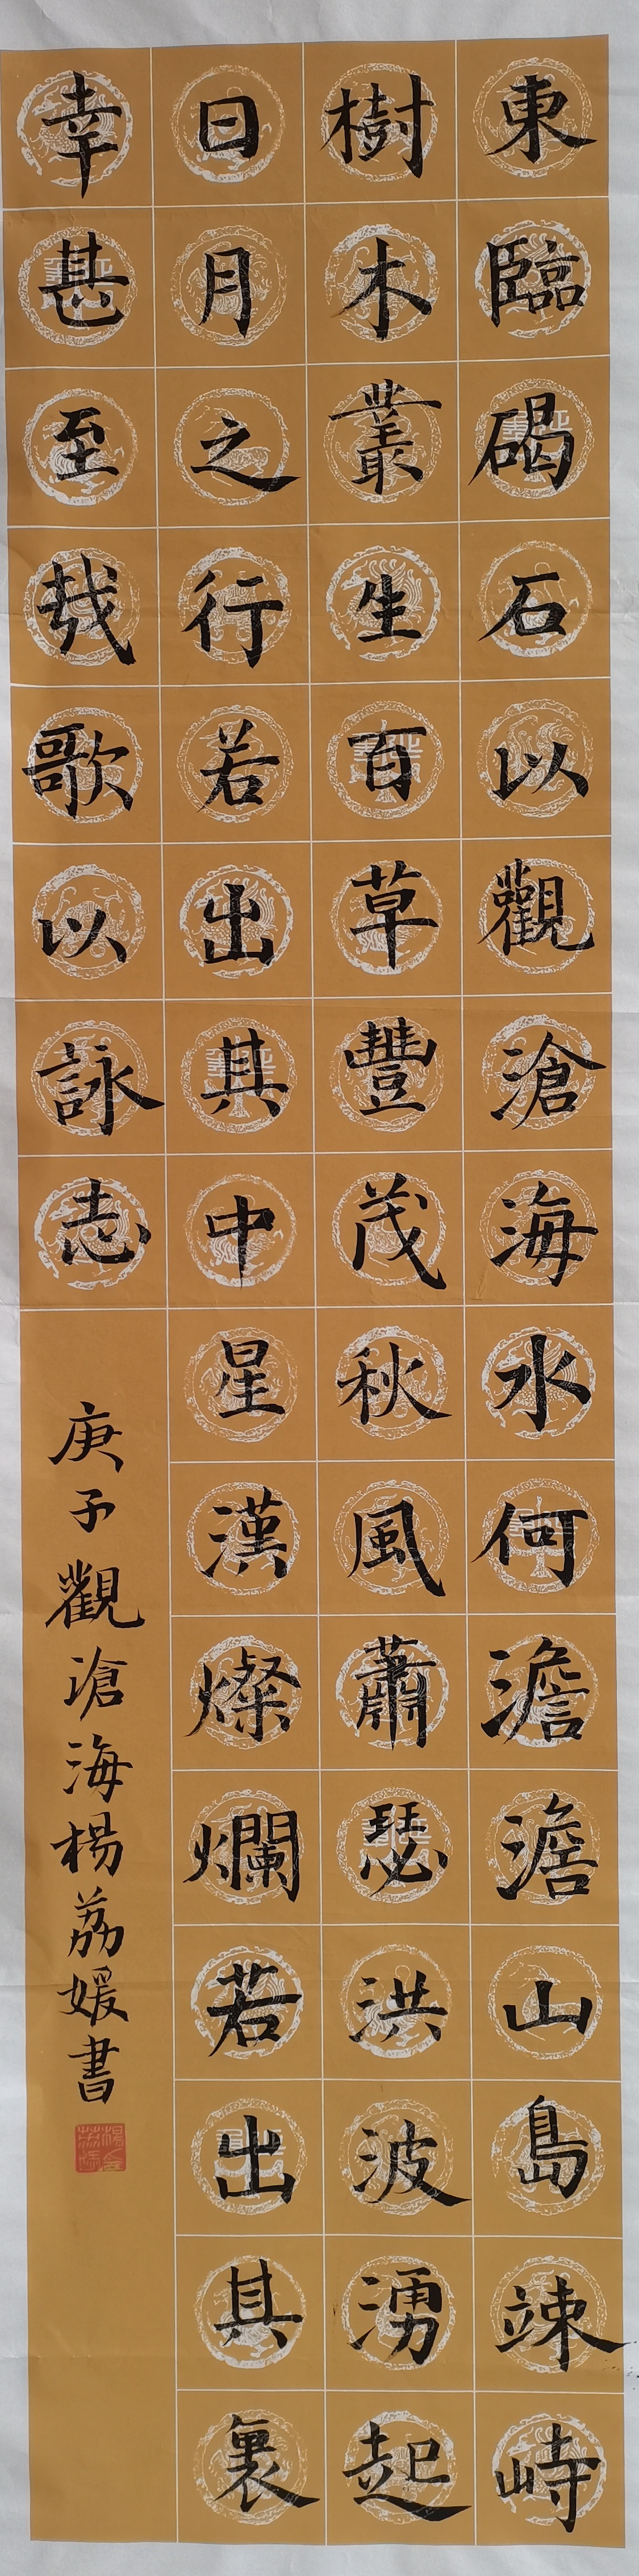 東臨碣石以觀滄海水何澹澹山島竦峙
樹木叢生百草豐茂秋風蕭瑟洪波湧起
日月之行若出其中星漢燦爛若出其裏
幸甚至哉歌以詠志
庚子觀滄海楊荔媛書